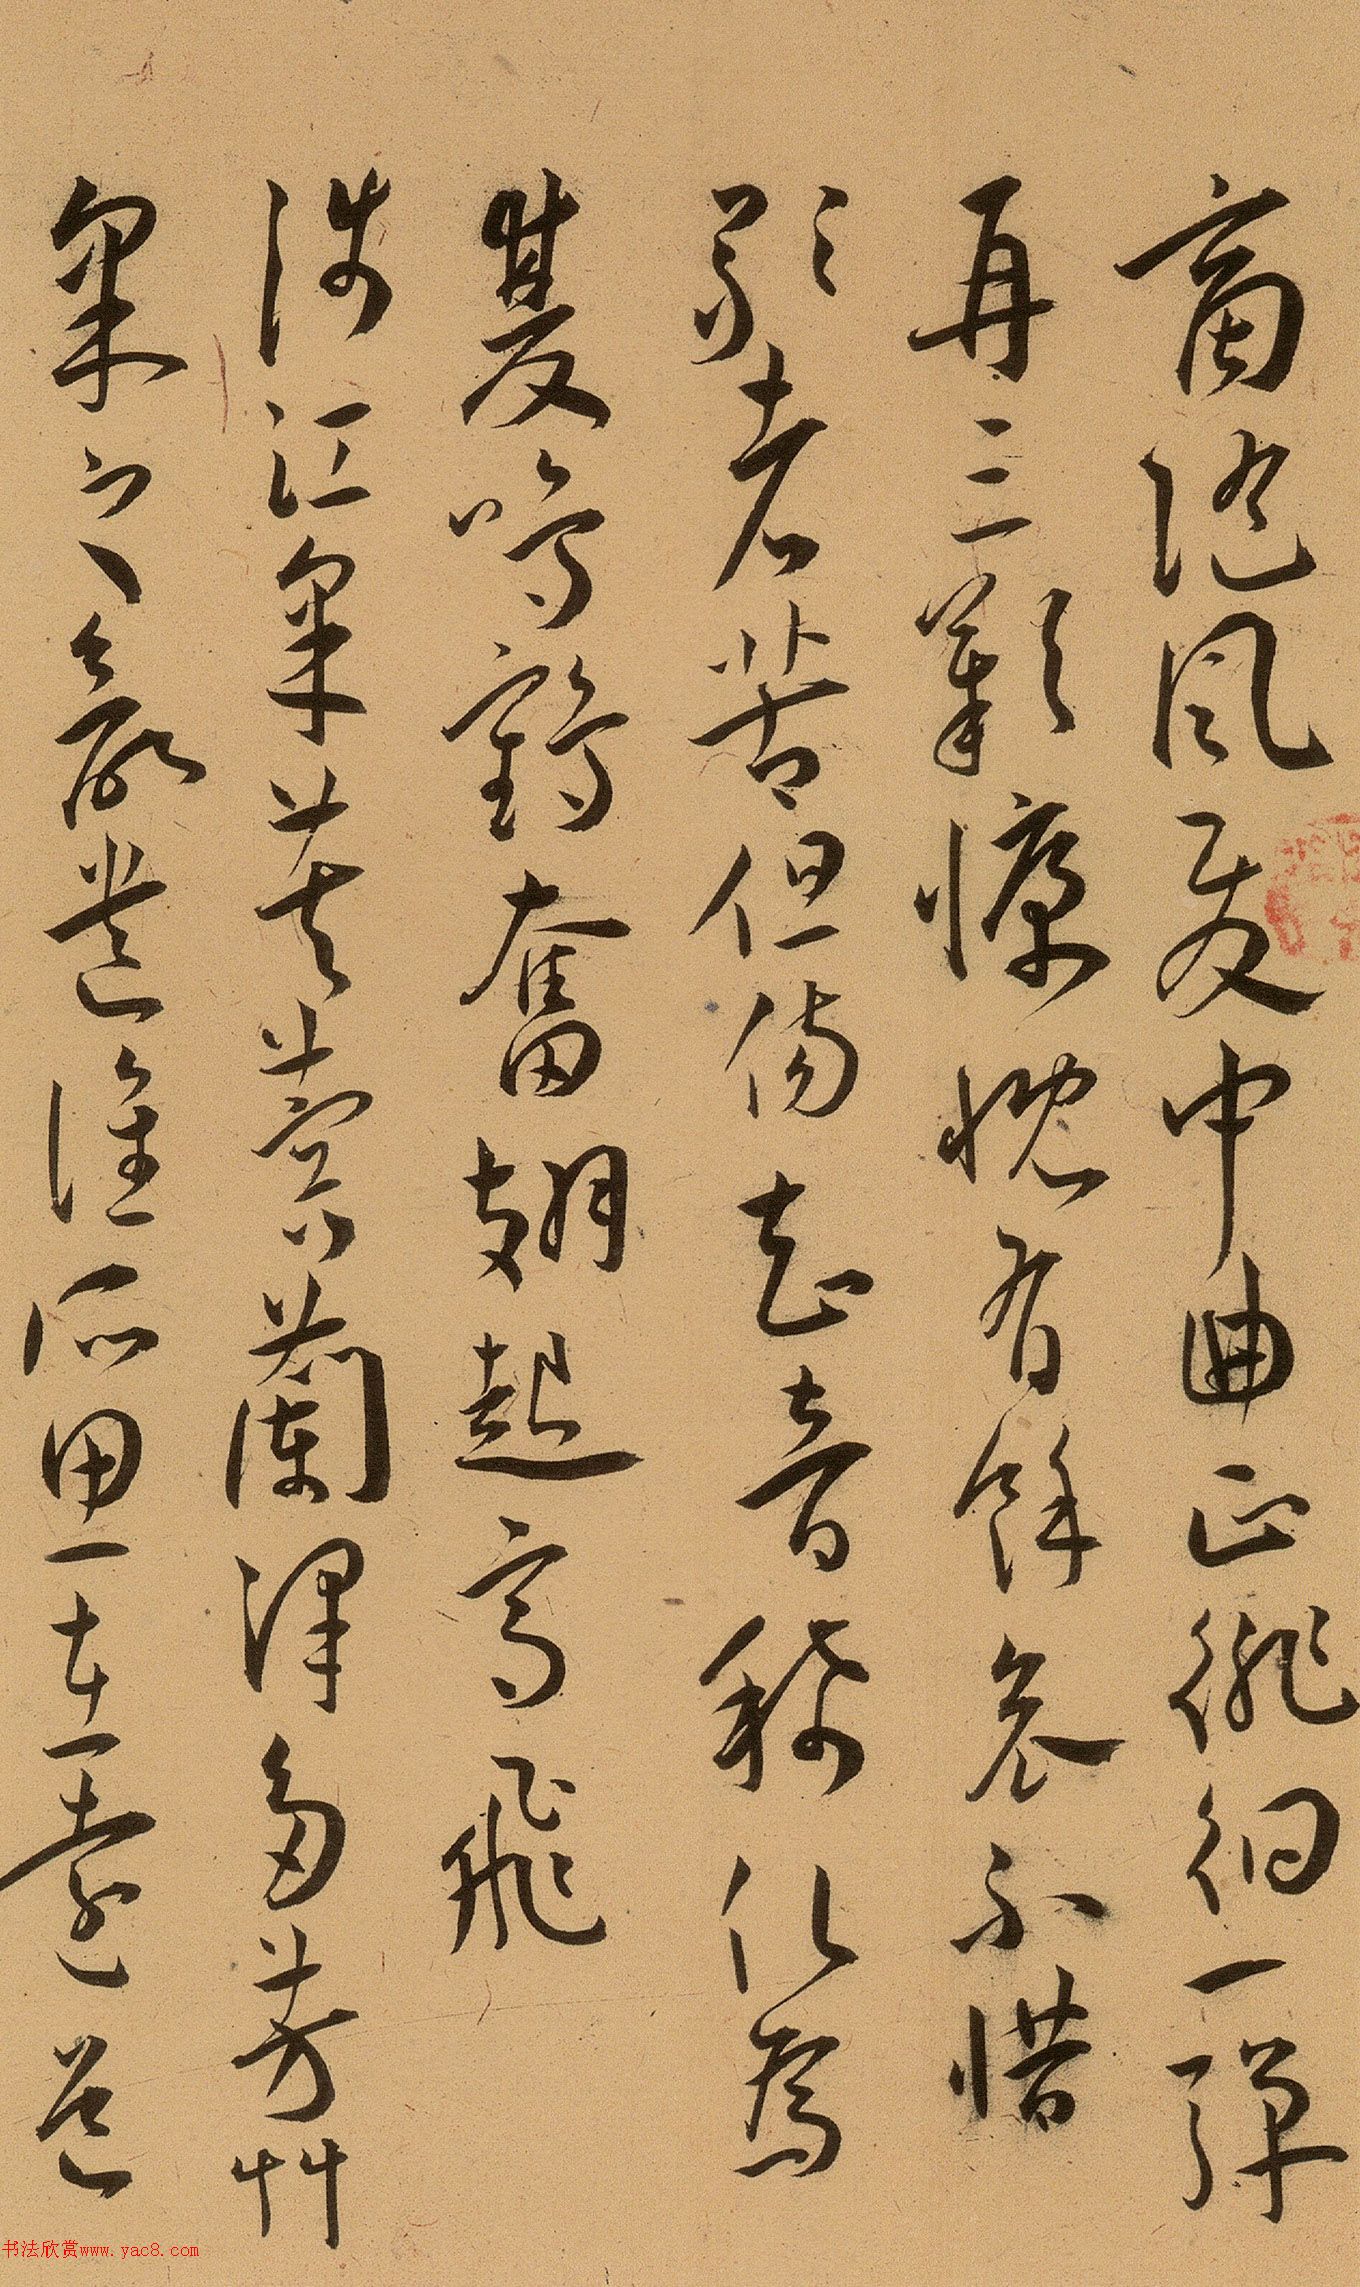 商隨風發中曲正徘徊一彈
再三歎慷慨有餘哀不惜
歌者苦但傷知音稀化為
雙鳴鶴奮翅起高飛
涉江采芙蓉蘭澤多芳艸
采之欲遺誰所思在遠道
书法欣赏www.yac8.com